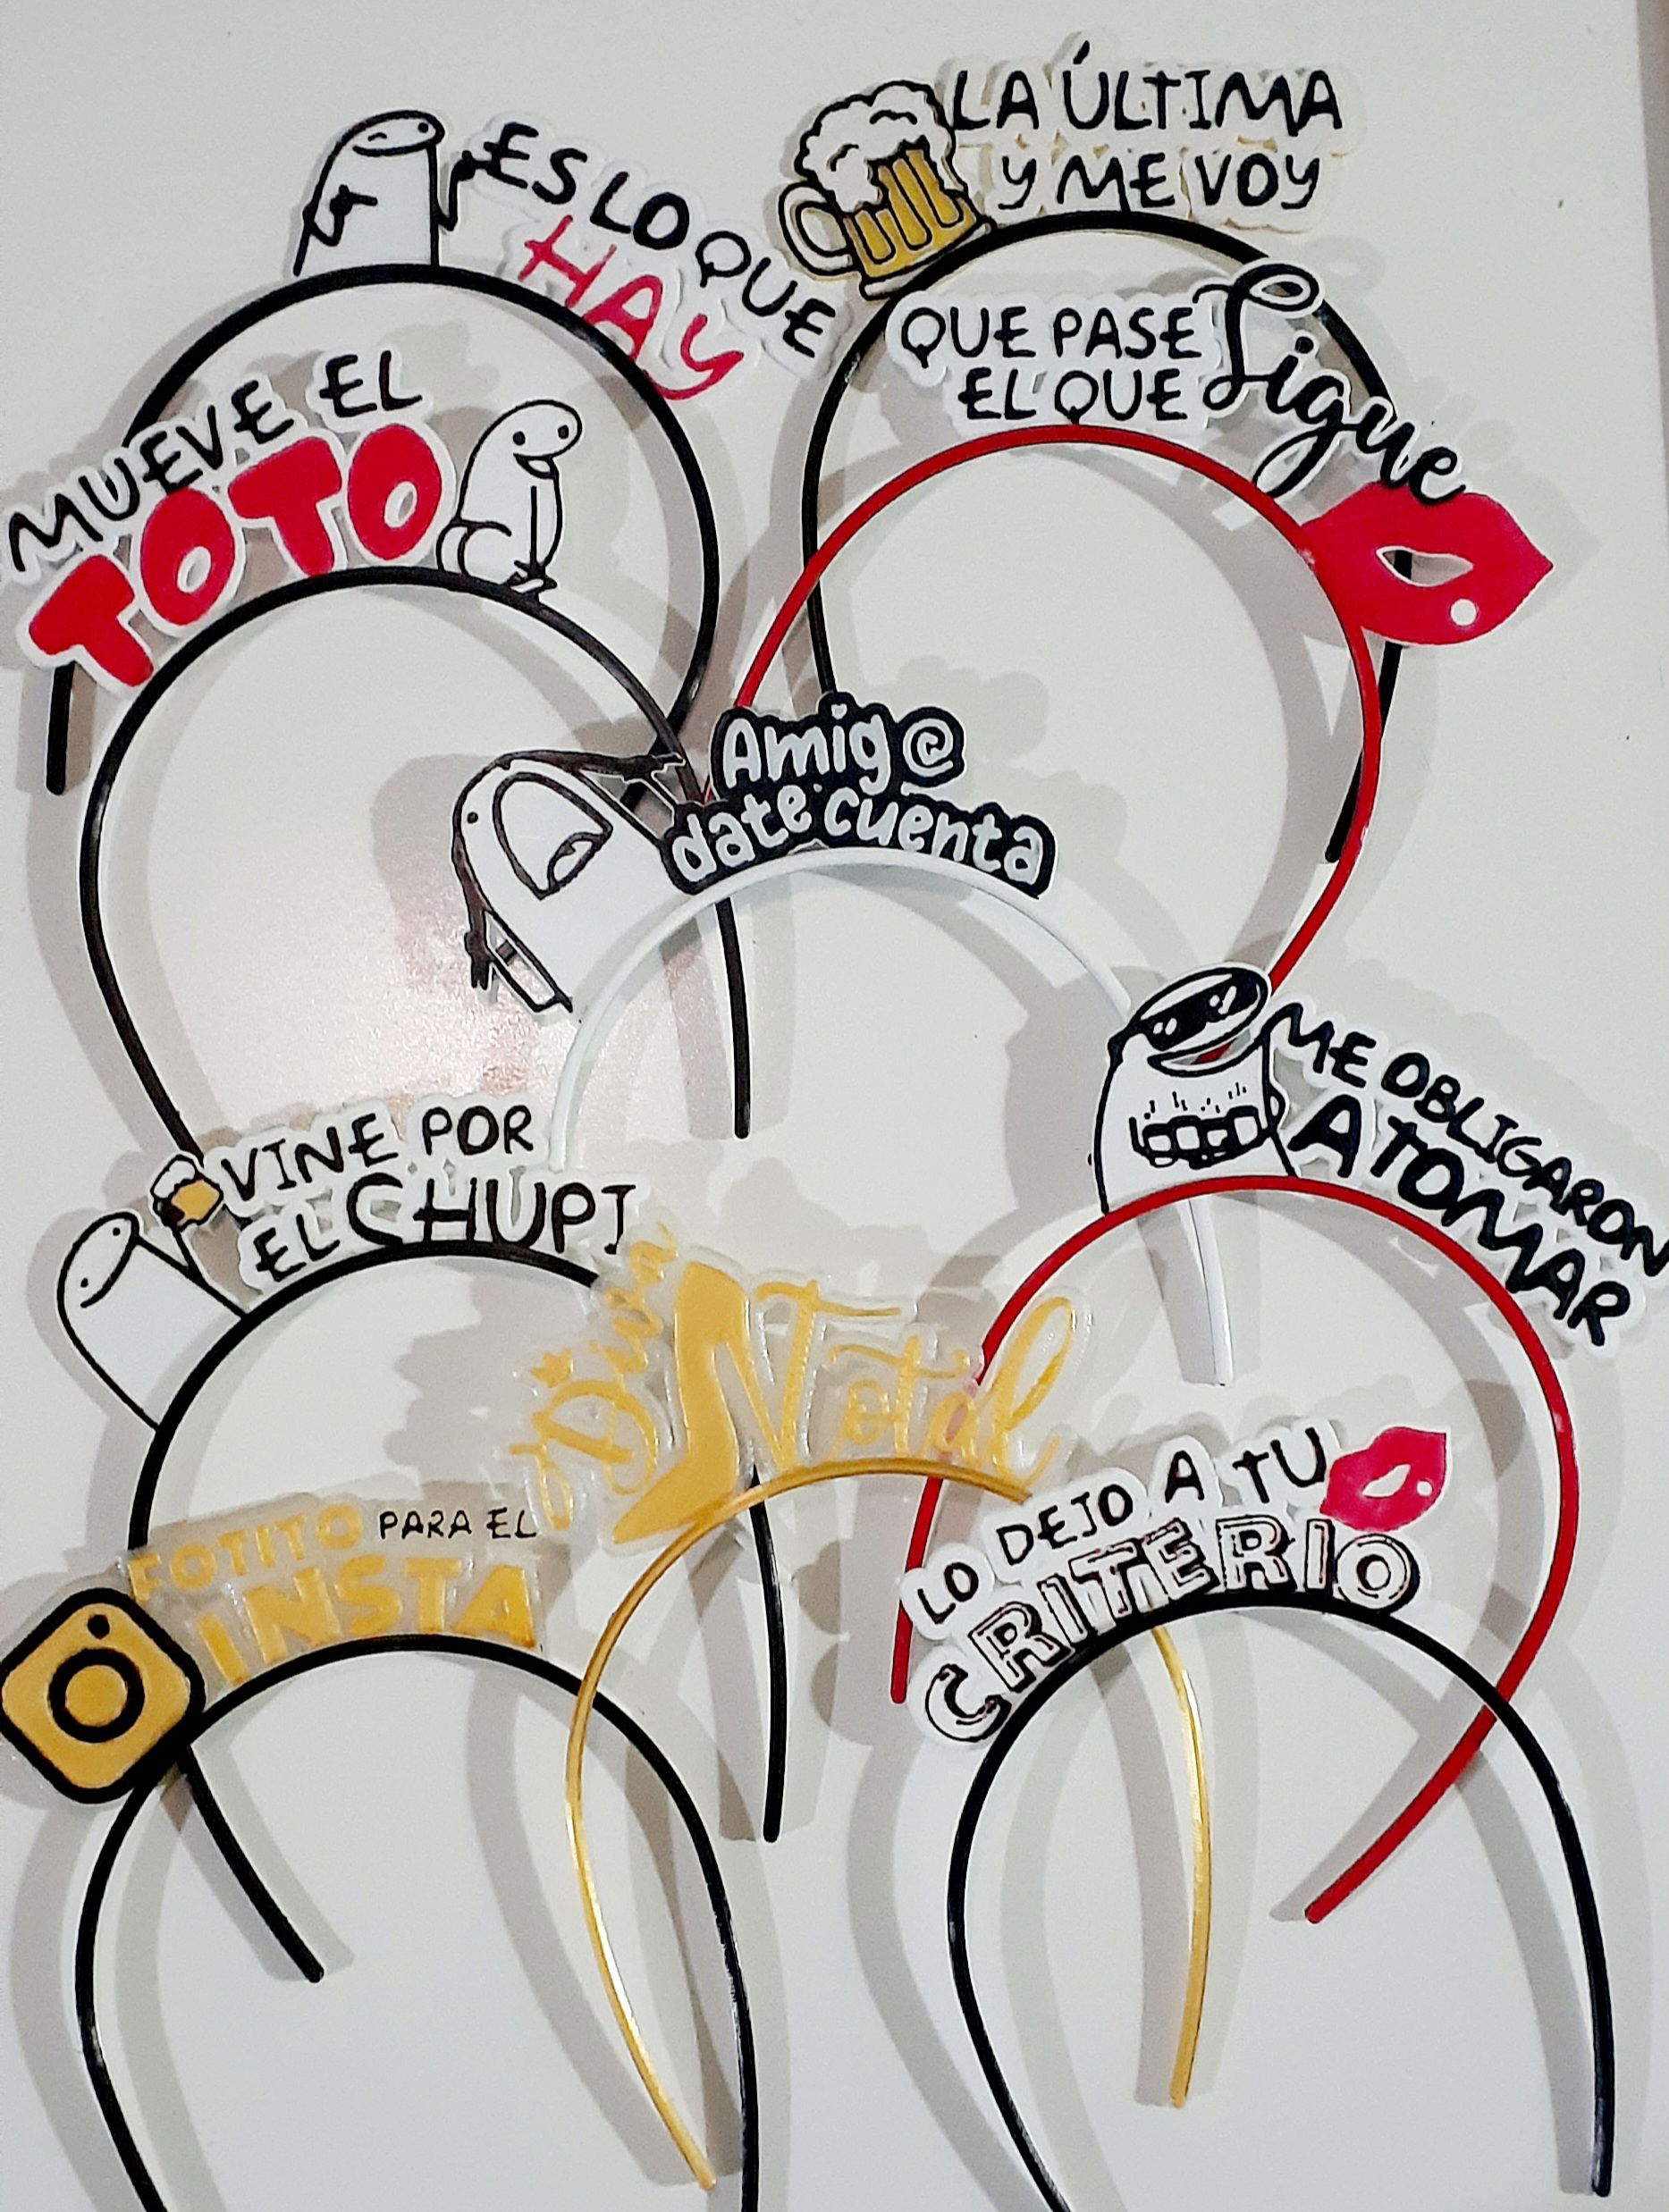 ES LO QUE
HAY
LA ÚLTIMA
Y ME VOY
MUEVE EL
TOTO
QUE PASE
EL QUE
Sigue
Amig@
date cuenta
ME OBLIGARON
A TOMAR
VINE POR
EL CHUPI
Diva
Total
FOTITO PARA EL
INSTA
LO DEJO A TU
CRITERIO